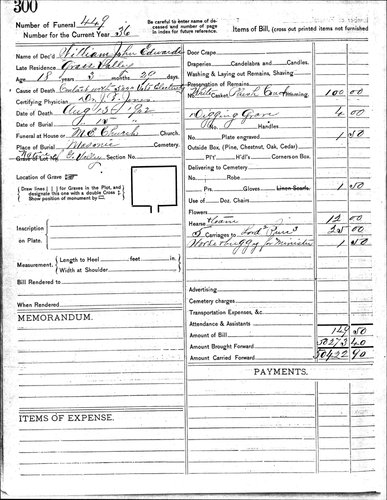 300
Number of Funeral 449
Number for the Current Year 36
Be carefull to enter name of deceased and number of page in index for future reference.
Items of Bill, (cross out printed items not furnished)
Name of Dec'd William John Edwards
Late Residence Grass Valley
Age 18 years 3 months 20 days.
Cause of Death Contact with 2000 Volts Electricity
Certifying Physician Dr. Jones
Date of Death Aug 13th 1922
Date of Burial " 15 "
Funeral at House or M.E. Church Church.
Place of Burial Masonic Cemetery.
Grave or Lot No. Section No.
Location of Grave
Draw lines for Graves in the Plot, and designate this one with a double Cross
Show position of monument by
Inscription on Plate.
Measurement. Length to Heel feet in.
Width at Shoulder
Bill Rendered to
When Rendered
MEMORANDUM.
ITEMS OF EXPENSE.
Door Crape
Draperies Candelabra and Candles.
Washing & Laying out Remains, Shaving
Preservation of Remains
White Casket Plush Trimming 100 00
Digging Grave 4 00
No. Handles.
No. Plate engraved 1 50
Outside Box, (Pine, Chestnut, Oak, Cedar)
Pl'd Handles Corners on Box.
Delivering to Cemetery
No. Robe
Prs. Gloves Linen Scarfs. 1 50
Use of Doz. Chairs
Flowers
Hearse Team 12 00
5 Carriages to 25 00
Horse buggy for Minister 1 50
Advertising
Cemetery charges
Transportation Expenses, &c.
Attendance & Assistants
Amount of Bill 149 50
Amount Brought Forward 50273 40
Amount Carried Forward 50422 90
PAYMENTS.